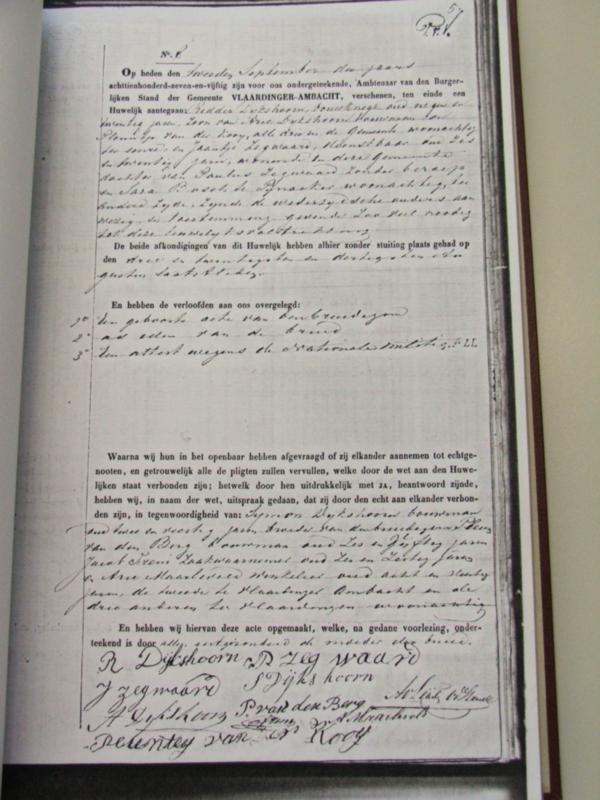 57
No. 8.
Op heden den tweeden September des jaars
achttienhonderd-zeven-en-vijftig zijn voor ons ondergeteekende, Ambtenaar van den Burger-
lijken Stand der Gemeente VLAARDINGER-AMBACHT, verschenen, ten einde een
Huwelijk aantegaan: Ridder Dykshoorn, bouwknegt oud negen en
twintig jaren, zoon van Arie Dykshoorn bouwman en
Pleuntje van der Kooy, alle drie in de Gemeente woonachtig
ter eenre, en Jaantje Zegwaard, dienstbaar oud Zes
en twintig jaren, wonende in deze Gemeente
dochter van Paulus Zegwaard zonder beroep
en Sara Bosch te Pynacker woonachtig, ter
andere zyde, zynde de wederzydsche ouders aan
wezig en toestemming gevende Zoo veel noodig
tot deze huwelyksvoltrekking
De beide afkondigingen van dit Huwelijk hebben alhier zonder stuiting plaats gehad op
den drie en twintigsten en dertigsten Au
gustus laatstleden.
En hebben de verloofden aan ons overgelegd:
1o Een geboorte acte van den bruidegom
2o van de bruid
3o Een attest wegens de nationale militie
Waarna wij hun in het openbaar hebben afgevraagd of zij elkander aannemen tot echtge-
nooten, en getrouwelijk alle de pligten zullen vervullen, welke door de wet aan den Huwe-
lijken staat verbonden zijn; hetwelk door hen uitdrukkelijk met JA, beantwoord zijnde,
hebben wij, in naam der wet, uitspraak gedaan, dat zij door den echt aan elkander verbon-
den zijn, in tegenwoordigheid van: Symon Dykshoorn bouwman
oud twee en veertig jaren broeder van den bruidegom,
van den Berg bouwman oud Zes en Vyftig jaren
Jacob Zaakwaarnemer oud Zes en jaren
en Arie Maarleveld winkelier oud acht en
jaren, de tweede te Vlaardinger Ambacht en de
drie anderen te Vlaardingen woonachtig
En hebben wij hiervan deze acte opgemaakt, welke, na gedane voorlezing, onder-
teekend is door allen, uitgezonderd de moeder der bruid.
R Dijkshoorn P zeg waard
J zegwaard S Dijkshoorn
A Dijkshoorn P. van den Berg
A Maarleveld
Pleuntey van der Kooy